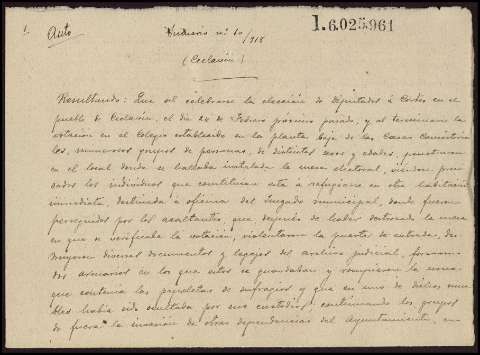 1.
Auto
Sumario nº 10/918
1.6.025.961
(Ceclavín)
Resultando: Que al celebrarse la elección de Diputados á Cortes en el
pueblo de Ceclavín, el día 24 de Febrero próximo pasado, y al terminarse la
votación en el Colegio establecido en la planta baja de las Casas Consistoria
les, numerosos grupos de personas, de distintos sexos y edades, penetraron
en el local donde se hallaba instalada la mesa electoral, viendose pre
cisados los individuos que constituian esta á refugiarse en otra habitación
inmediata, destinada á oficina del Juzgado municipal, donde fueron
perseguidos por los asaltantes, que después de haber destrozado la mesa
en que se verificaba la votación, violentaron la puerta de entrada, des
truyeron diversos documentos y legajos del archivo judicial, forzaron
dos armarios en los que estos se guardaban y rompieron la urna
que contenia las papeletas de sufragios y que en uno de dichos mue
bles habia sido ocultada por sus custodios, continuando los grupos
de fuera la invasión de otras dependencias del Ayuntamiento, en